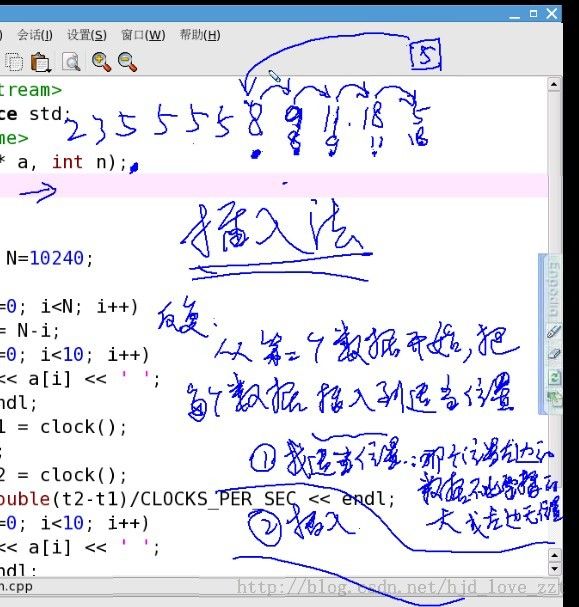 会话(I) 设置(S) 窗口(W) 帮助(H)
5
tream>
ce std;
2 3 5 5 5 5 8 9 11 18 5
me>
8 9 11 18
* a, int n);
插入法
N=10240;
=0; i<N; i++)
反复
= N-i;
从第二个数据开始,把
=0; i<10; i++)
<< a[i] << ' ';
每个数据插入到适当位置
ndl;
1 = clock();
①找适当位置:那个位置左边的
;
2 = clock();
数据不比要插的
ouble(t2-t1)/CLOCKS_PER_SEC << endl;
大或左边无位置
=0; i<10; i++)
②插入
<< a[i] << ' ';
ndl;
n.cpp
http://blog.csdn.net/hjd_love_zz